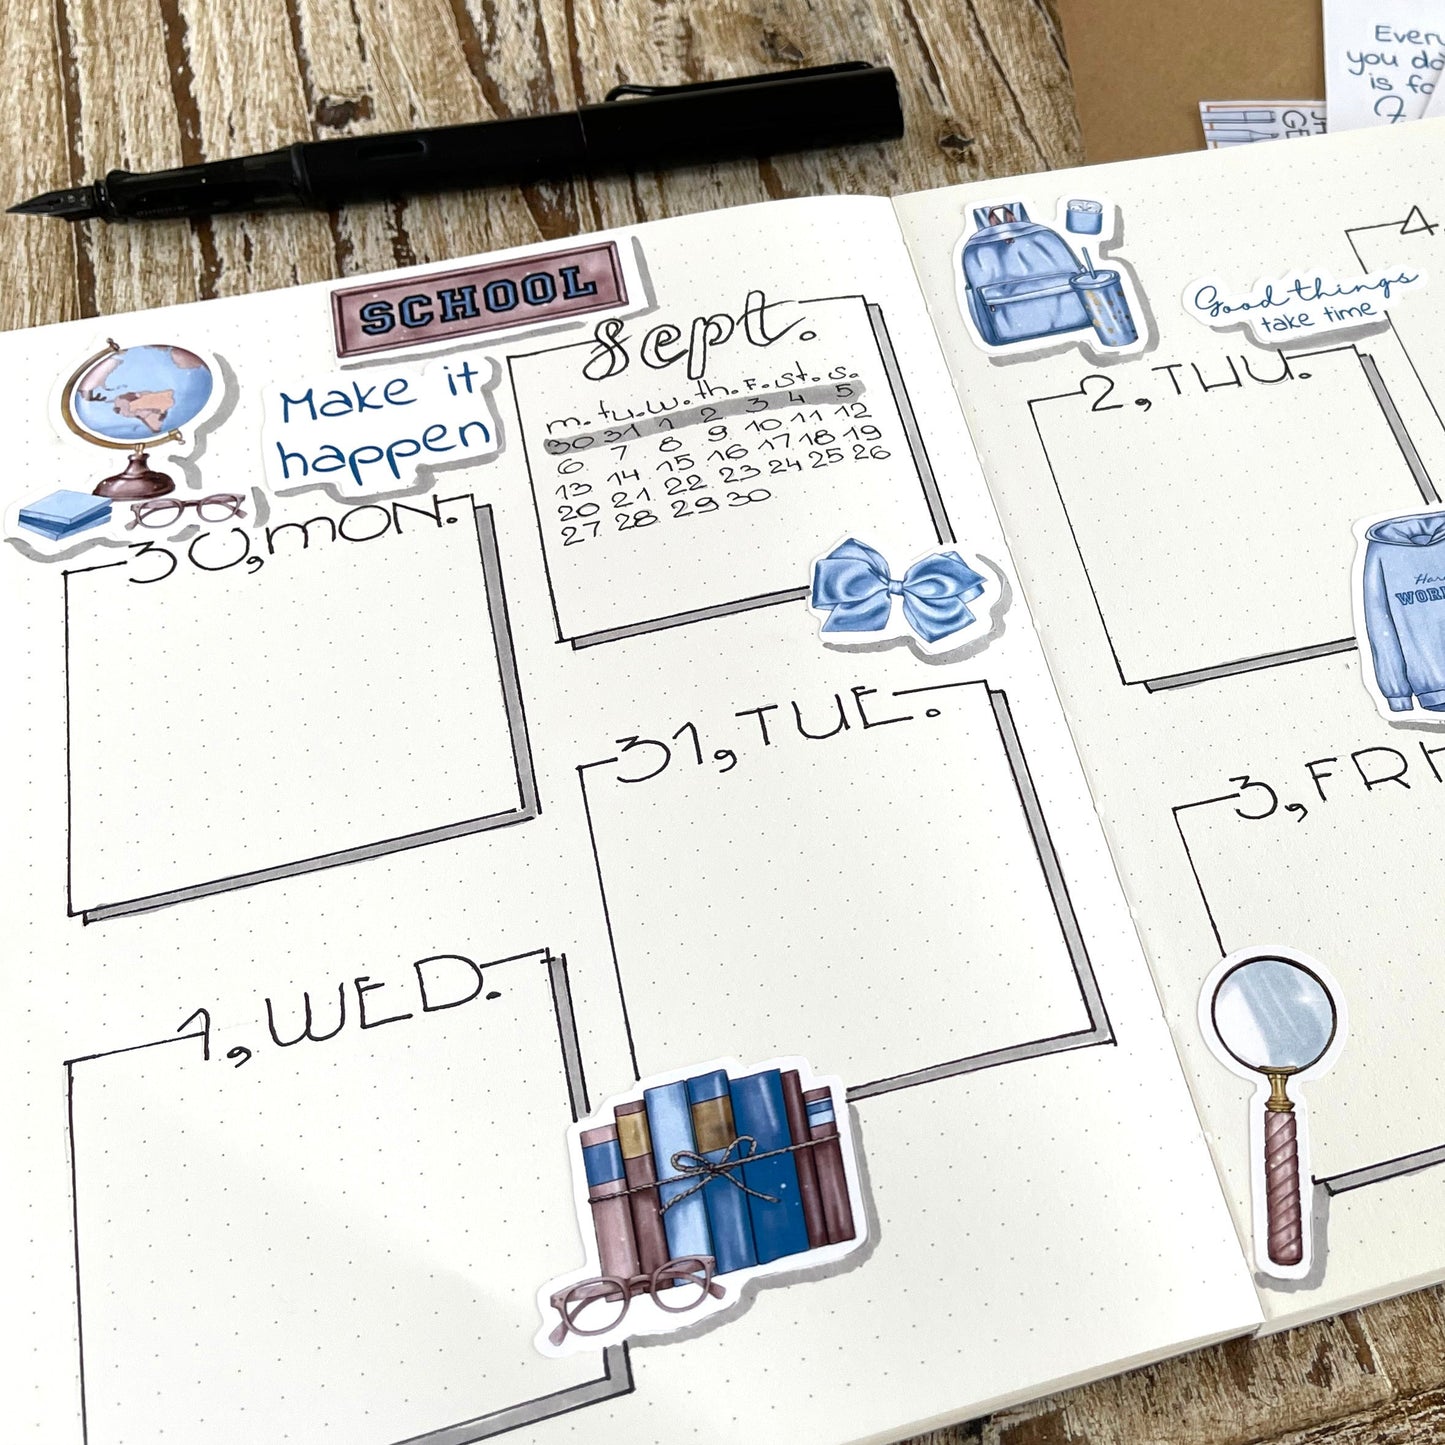 SCHOOL
Make it
happen
Sept.
m. tu. w. th. F. St. S.
30 31 1 2 3 4 5
6 7 8 9 10 11 12
13 14 15 16 17 18 19
20 21 22 23 24 25 26
27 28 29 30
30, MON.
31, TUE.
1, WED.
Good things
take time
2, THU.
4.
3, FRI
WOR
you do
is fo
GE